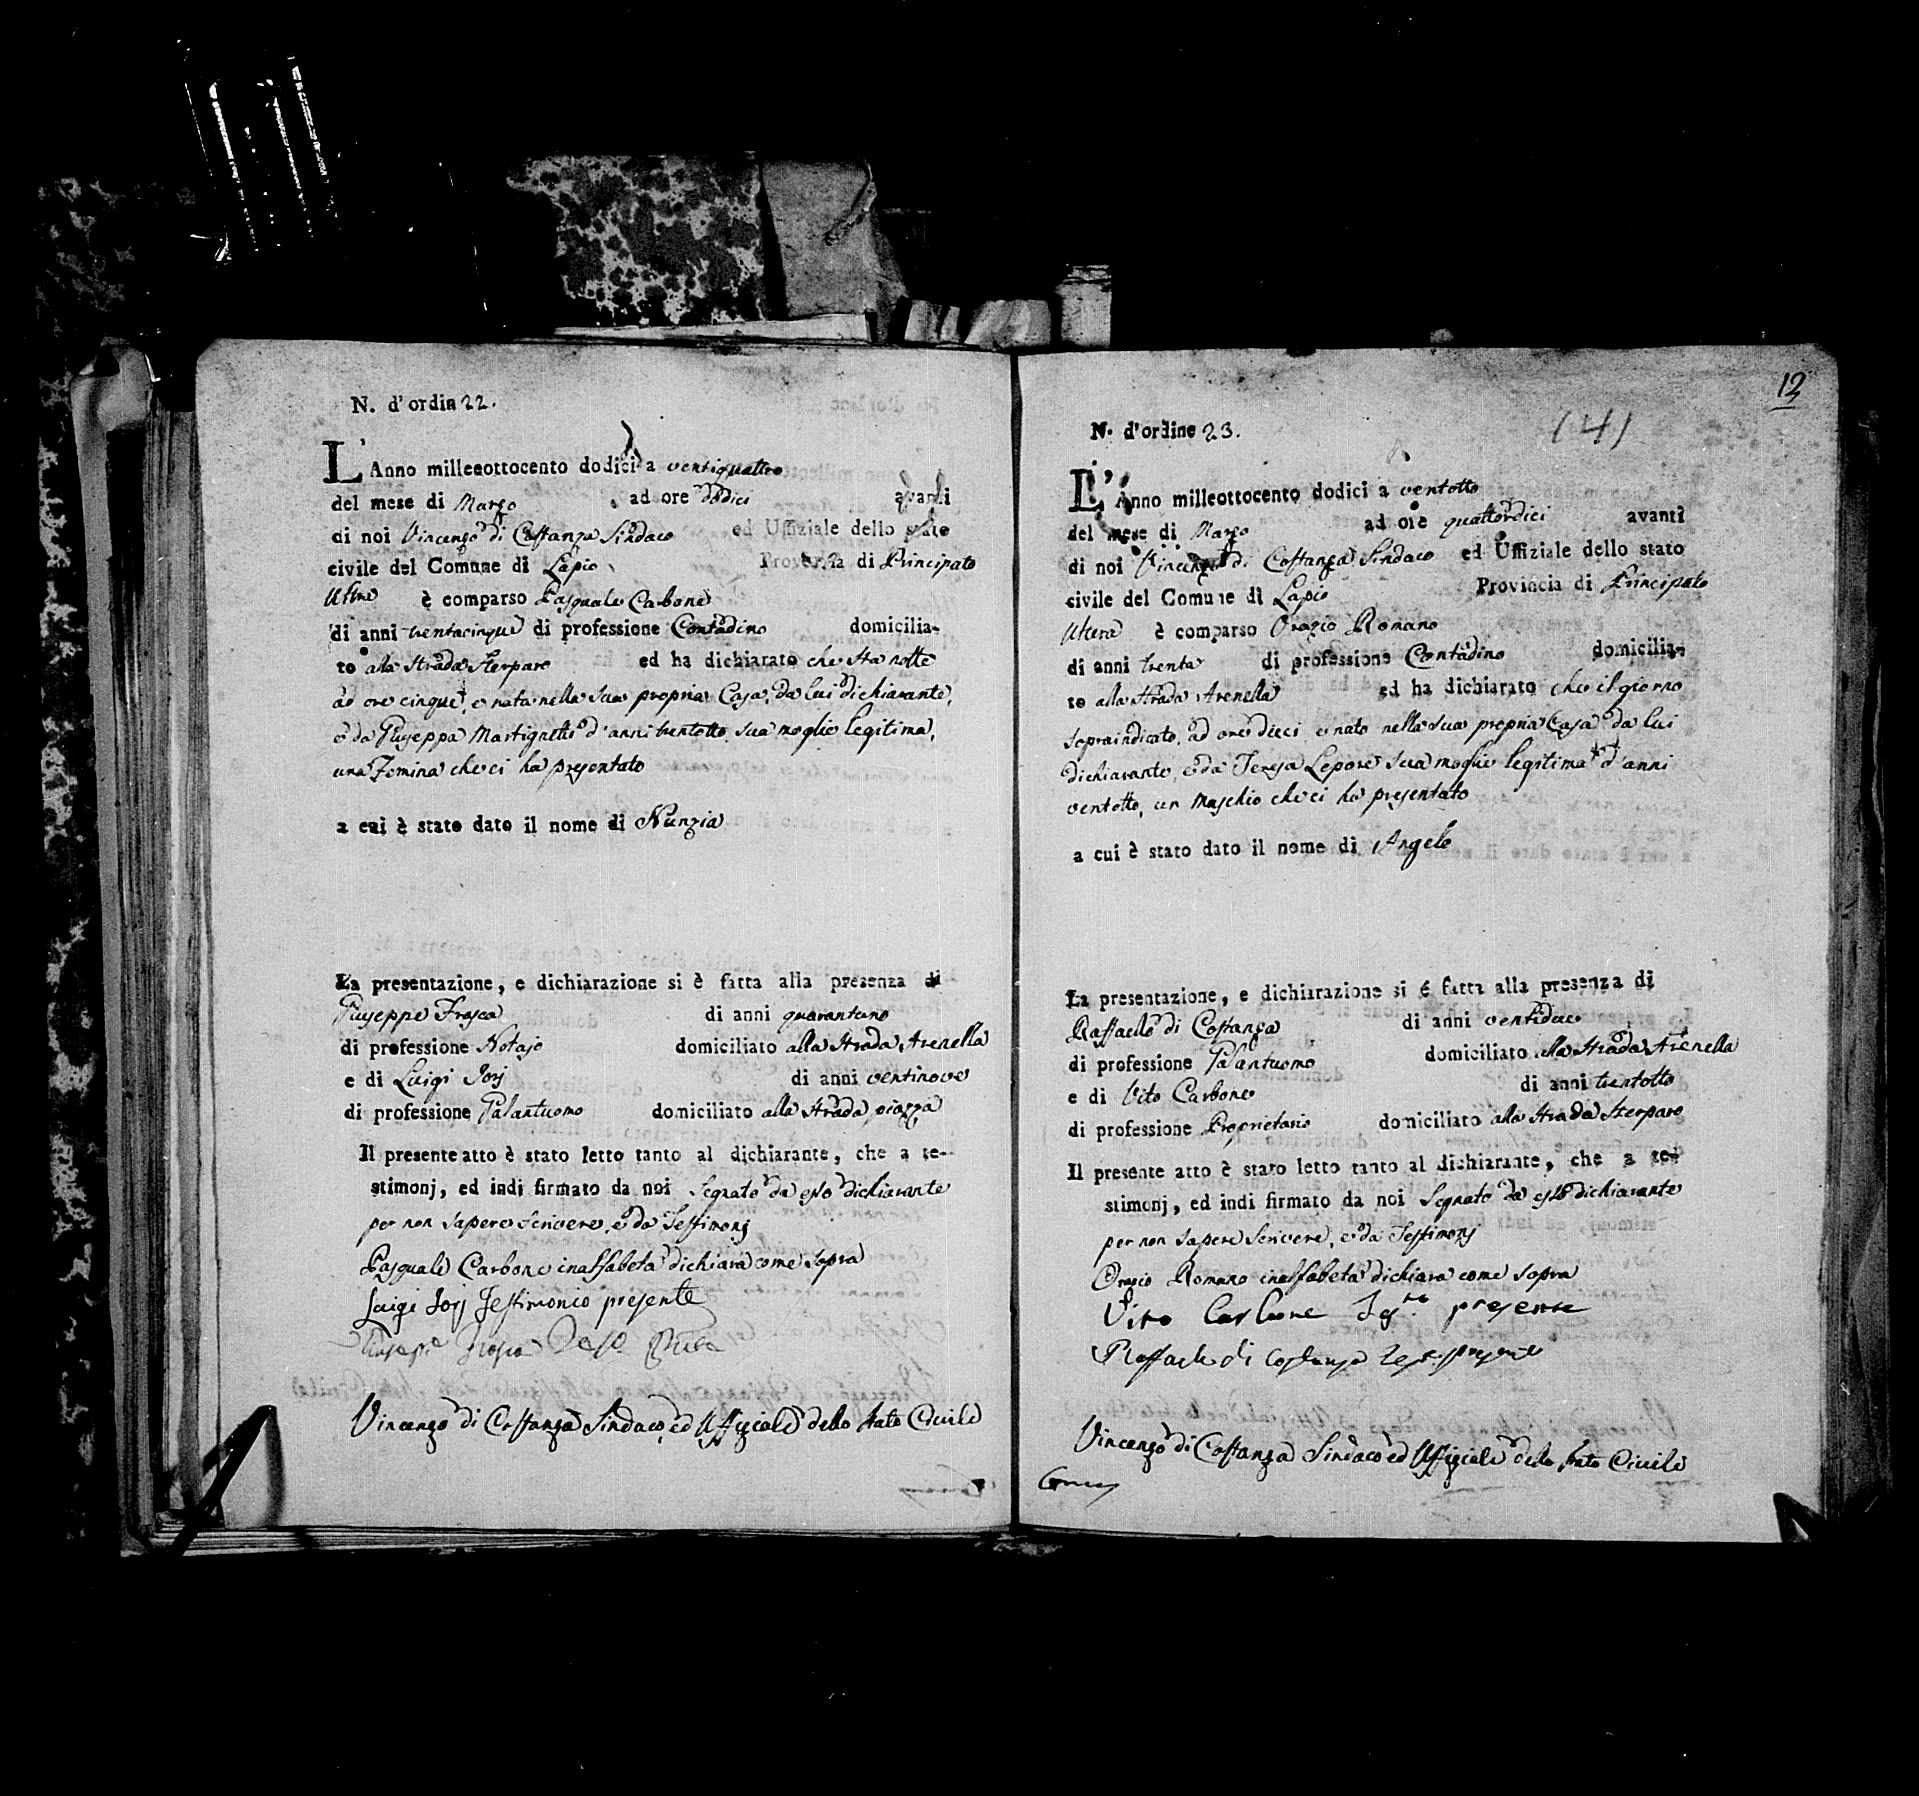 N. d'ordin 22.
L'Anno milleeottocento dodici a ventiquattro
del mese di Marzo ad ore dodici avanti
di noi Vincenzo di Costanza Sindaco ed Uffiziale dello stato
civile del Comune di Lapio Provincia di Principato
Ultra è comparso Pasquale Carbone
di anni trentacinque di professione Contadino domicilia-
to alla Strada Sterparo ed ha dichiarato che sta notte
ad ore cinque, e nata nella sua propria Casa, da lui dichiarante,
e da Giuseppa Martignetti d'anni trentotto sua moglie legitima,
una Femina che ci ha presentato
a cui è stato dato il nome di Nunzia
La presentazione, e dichiarazione si è fatta alla presenza di
Giuseppe Frasca di anni quarantuno
di professione Notajo domiciliato alla Strada Arenella
e di Luigi Jorj di anni ventinove
di professione Galantuomo domiciliato alla Strada piazza
Il presente atto è stato letto tanto al dichiarante, che a te-
stimonj, ed indi firmato da noi Segnato da esso dichiarante
per non sapere scrivere, e da Testimonj
Pasquale Carbone inalfabeta dichiara come sopra
Luigi Jorj Testimonio presente
Giuseppe Frasca
Vincenzo di Costanza Sindaco, ed Uffiziale dello stato Civile
12
(4)
N. d'ordine 23.
L'Anno milleottocento dodici a ventotto
del mese di Marzo ad ore quattordici avanti
di noi Vincenzo di Costanza Sindaco ed Uffiziale dello stato
civile del Comune di Lapio Provincia di Principato
Ultera è comparso Orazio Romano
di anni trenta di professione Contadino domicilia-
to alla Strada Arenella ed ha dichiarato che il giorno
sopraindicato, ad ore dieci e nato nella sua propria Casa da lui
dichiarante, e da Teresa Lepore sua moglie legitima d'anni
ventotto, un Maschio che ci ha presentato
a cui è stato dato il nome di Angelo
La presentazione, e dichiarazione si è fatta alla presenza di
Raffaele di Costanza di anni ventidue
di professione Galantuomo domiciliato alla Strada Arenella
e di Vito Carbone di anni trentotto
di professione Proprietario domiciliato alla Strada Sterparo
Il presente atto è stato letto tanto al dichiarante, che a te-
stimonj, ed indi firmato da noi Segnato da esso dichiarante
per non sapere scrivere, e da Testimonj
Orazio Romano inalfabeta dichiara come sopra
Vito Carbone presente
Raffaele di Costanza presente
Vincenzo di Costanza Sindaco ed Uffiziale dello stato Civile